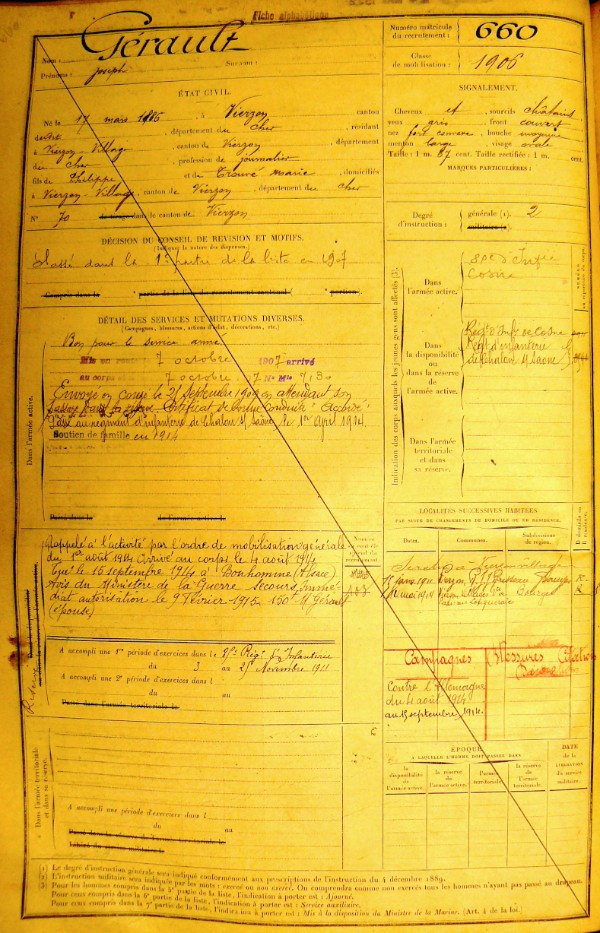 Fiche alphabétique
Nom : Gérault
Prénoms : Joseph
Surnoms :
Numéro matricule du recrutement : 660
Classe de mobilisation : 1906
ÉTAT CIVIL.
Né le 17 mars 1886, à Vierzon, canton
dudit, département du Cher, résidant
à Vierzon-Village, canton de Vierzon, département
du Cher, profession de journalier
fils de Philippe et de Trouvé Marie, domiciliés
à Vierzon-Village, canton de Vierzon, département du Cher
N° 70 de tirage dans le canton de Vierzon
SIGNALEMENT.
Cheveux et sourcils châtains
yeux gris, front couvert
nez fort, bouche moyenne
menton large, visage ovale
Taille : 1 m. 67 cent. Taille rectifiée : 1 m. cent.
MARQUES PARTICULIÈRES :
Degré d'instruction :
générale (1) : 2
militaire (2) :
DÉCISION DU CONSEIL DE RÉVISION ET MOTIFS.
(Indiquer la nature des dispenses.)
Classé dans la 1re partie de la liste en 1907
Compris dans la partie de la liste du recrutement cantonal ( portion).
DÉTAIL DES SERVICES ET MUTATIONS DIVERSES.
(Campagnes, blessures, actions d'éclat, décorations, etc.)
Bon pour le service armé
Mis en route 7 octobre 1907 arrivé
au corps 7 octobre 7 N° Mle 7130
Envoyé en congé le 21 septembre 1909 en attendant son
passage dans la réserve. Certificat de bonne conduite "Accordé"
Passé au régiment d'infanterie de Chalon s/ Saône le 1er Avril 1914
Soutien de famille en 1914
Passé dans la
de l'armée active.
Dans l'armée active.
Indication des corps auxquels les jeunes gens sont affectés (3).
Dans l'armée active.
85e d'Infie
Cosne
Dans la disponibilité ou dans la réserve de l'armée active.
Régt d'Infie de Cosne
Régt d'infanterie
de Chalon s/ Saône
Dans l'armée territoriale et dans sa réserve.
Rappelé à l'activité par l'ordre de mobilisation générale
du 1er août 1914 Arrivé au corps le 4 août 1914
Tué le 15 septembre 1914 à Bonhomme (Alsace)
Avis du Ministère de la Guerre Secours immé-
diat autorisation le 9 Février 1916 150f Mme Gérault
(épouse)
LOCALITÉS SUCCESSIVES HABITÉES
PAR SUITE DE CHANGEMENTS DE DOMICILE OU DE RÉSIDENCE.
Dates.
Communes.
Subdivisions de région.
A accompli une 1re période d'exercices dans le 85e Régt d'Infanterie
du 3 au 25 Novembre 1911
A accompli une 2e période d'exercices dans l
du au
Passé dans l'armée territoriale le
Campagnes
Blessures
Contre l'Allemagne
du 4 août 1914
au 15 septembre 1914
ÉPOQUE
À LAQUELLE L'HOMME DOIT PASSER DANS
la disponibilité de l'armée active.
la réserve de l'armée active.
l'armée territoriale.
la réserve de l'armée territoriale.
DATE de la libération du service militaire.
Dans l'armée territoriale et dans sa réserve.
A accompli une période d'exercices dans l
du au
(1) Le degré d'instruction générale sera indiqué conformément aux prescriptions de l'instruction du 4 décembre 1889.
(2) L'instruction militaire sera indiquée par les mots : exercé ou non exercé. On comprendra comme non exercés tous les hommes n'ayant pas passé au drapeau.
(3) Pour les hommes compris dans la 5e partie de la liste, l'indication à porter est : Ajourné.
Pour ceux compris dans la 6e partie de la liste, l'indication à porter est : Service auxiliaire.
Pour ceux compris dans la 7e partie de la liste, l'indication à porter est : Mis à la disposition du Ministre de la Marine. (Art. 4 de la loi.)